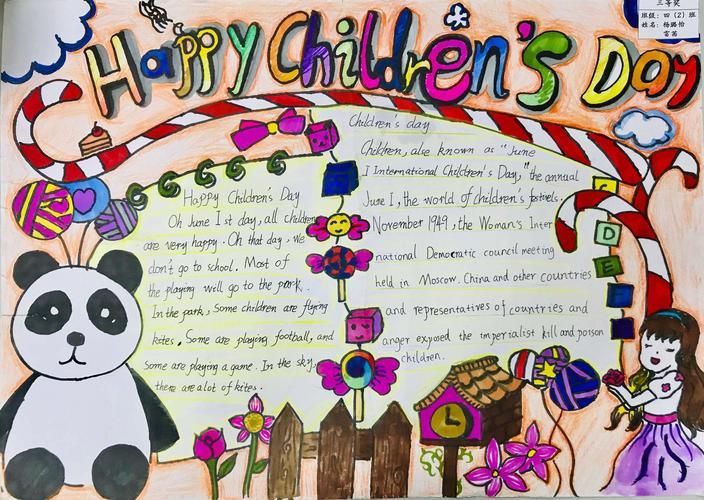 Happy Children's Day
三等奖
班级：四（2）班
姓名：杨璐怡
Happy Children's Day
Oh June 1 st day, all children
are very happy. Oh that day, we
don't go to school. Most of
the playing will go to the park.
In the park, Some children are flying
kites. Some are playing football, and
some are playing a game. In the sky,
there are alot of kites.
Children's day
Children, also known as "June
1 International Children's Day," the annual
June 1, the world of children's festivels.
November 1949, the Woman's Inter
national Democratic council meeting
held in Moscow. China and other countries
and representatives of countries and
anger exposed the imperialist kill and poison
children.
C
D
E